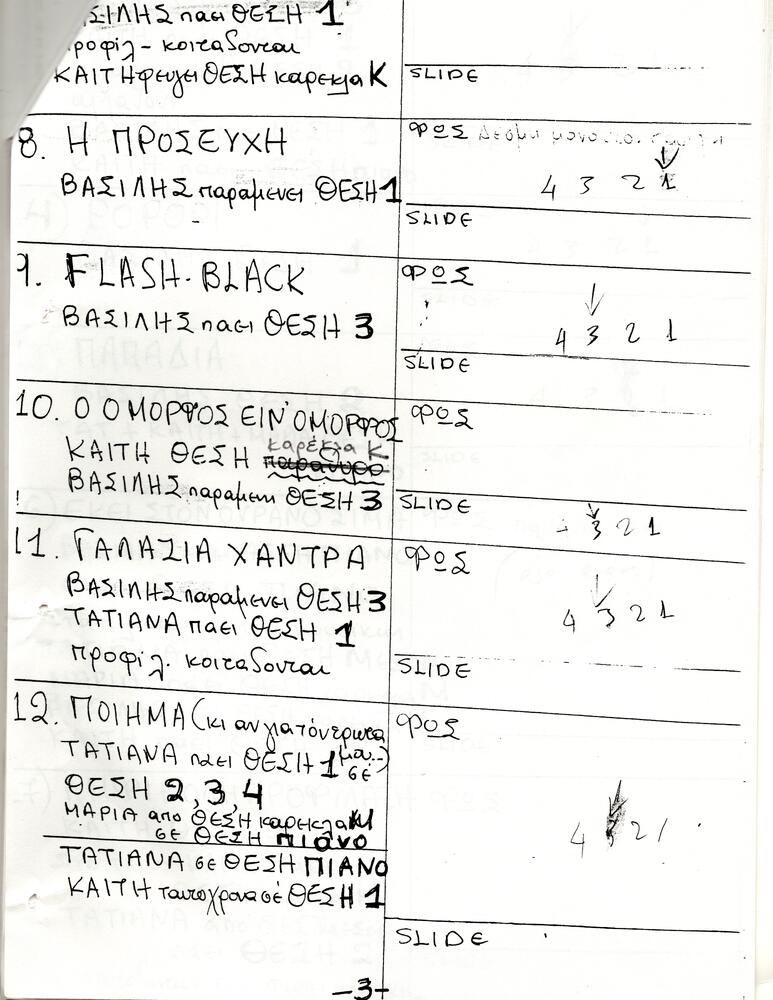 ΣΙΛΗΣ παει ΘΕΣΗ 1
προφίλ - κοιταδονται
ΚΑΙΤΗ φευγει ΘΕΣΗ καρεκλα Κ
SLIDE
8. Η ΠΡΟΣΕΥΧΗ
ΦΩΣ Δεσμη
ΒΑΣΙΛΗΣ παραμενει ΘΕΣΗ 1
4 3 2 1
SLIDE
9. FLASH-BLACK
ΦΩΣ
ΒΑΣΙΛΗΣ παει ΘΕΣΗ 3
4 3 2 1
SLIDE
10. Ο ΟΜΟΡΦΟΣ ΕΙΝ' ΟΜΟΡΦΟΣ
ΦΩΣ
ΚΑΙΤΗ ΘΕΣΗ καρέκλα Κ
ΒΑΣΙΛΗΣ παραμενει ΘΕΣΗ 3
SLIDE
3 2 1
11. ΓΑΛΑΣΙΑ ΧΑΝΤΡΑ
ΦΩΣ
ΒΑΣΙΛΗΣ παραμενει ΘΕΣΗ 3
ΤΑΤΙΑΝΑ παει ΘΕΣΗ 1
4 3 2 1
προφίλ. κοιταδονται
SLIDE
12. ΠΟΙΗΜΑ (κι αν για τόν ερωτα μου..)
ΦΩΣ
ΤΑΤΙΑΝΑ παει ΘΕΣΗ 1 σε
ΘΕΣΗ 2, 3, 4
ΜΑΡΙΑ από ΘΕΣΗ καρεκλα Μ
σε ΘΕΣΗ ΠΙΑΝΟ
4 3 2 1
ΤΑΤΙΑΝΑ σε ΘΕΣΗ ΠΙΑΝΟ
ΚΑΙΤΗ ταυτοχρονα σέ ΘΕΣΗ 1
SLIDE
-3-